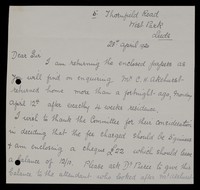 5 Thornfield Road
West Park
Leeds
28th April 1920
Dear Sir
I am returning the enclosed papers as
you will find on enquiring, Mr C. H. Akehurst
returned home more than a fortnight ago, Monday
April 12th after exactly six weeks residence.
I wish to thank the Committee for their consideration
in deciding that the fee charged should be 5 guineas
& am enclosing a cheque, £22 which should leave
a balance of 12/11. Please ask Dr Pierce to give this
balance to the attendant who looked after